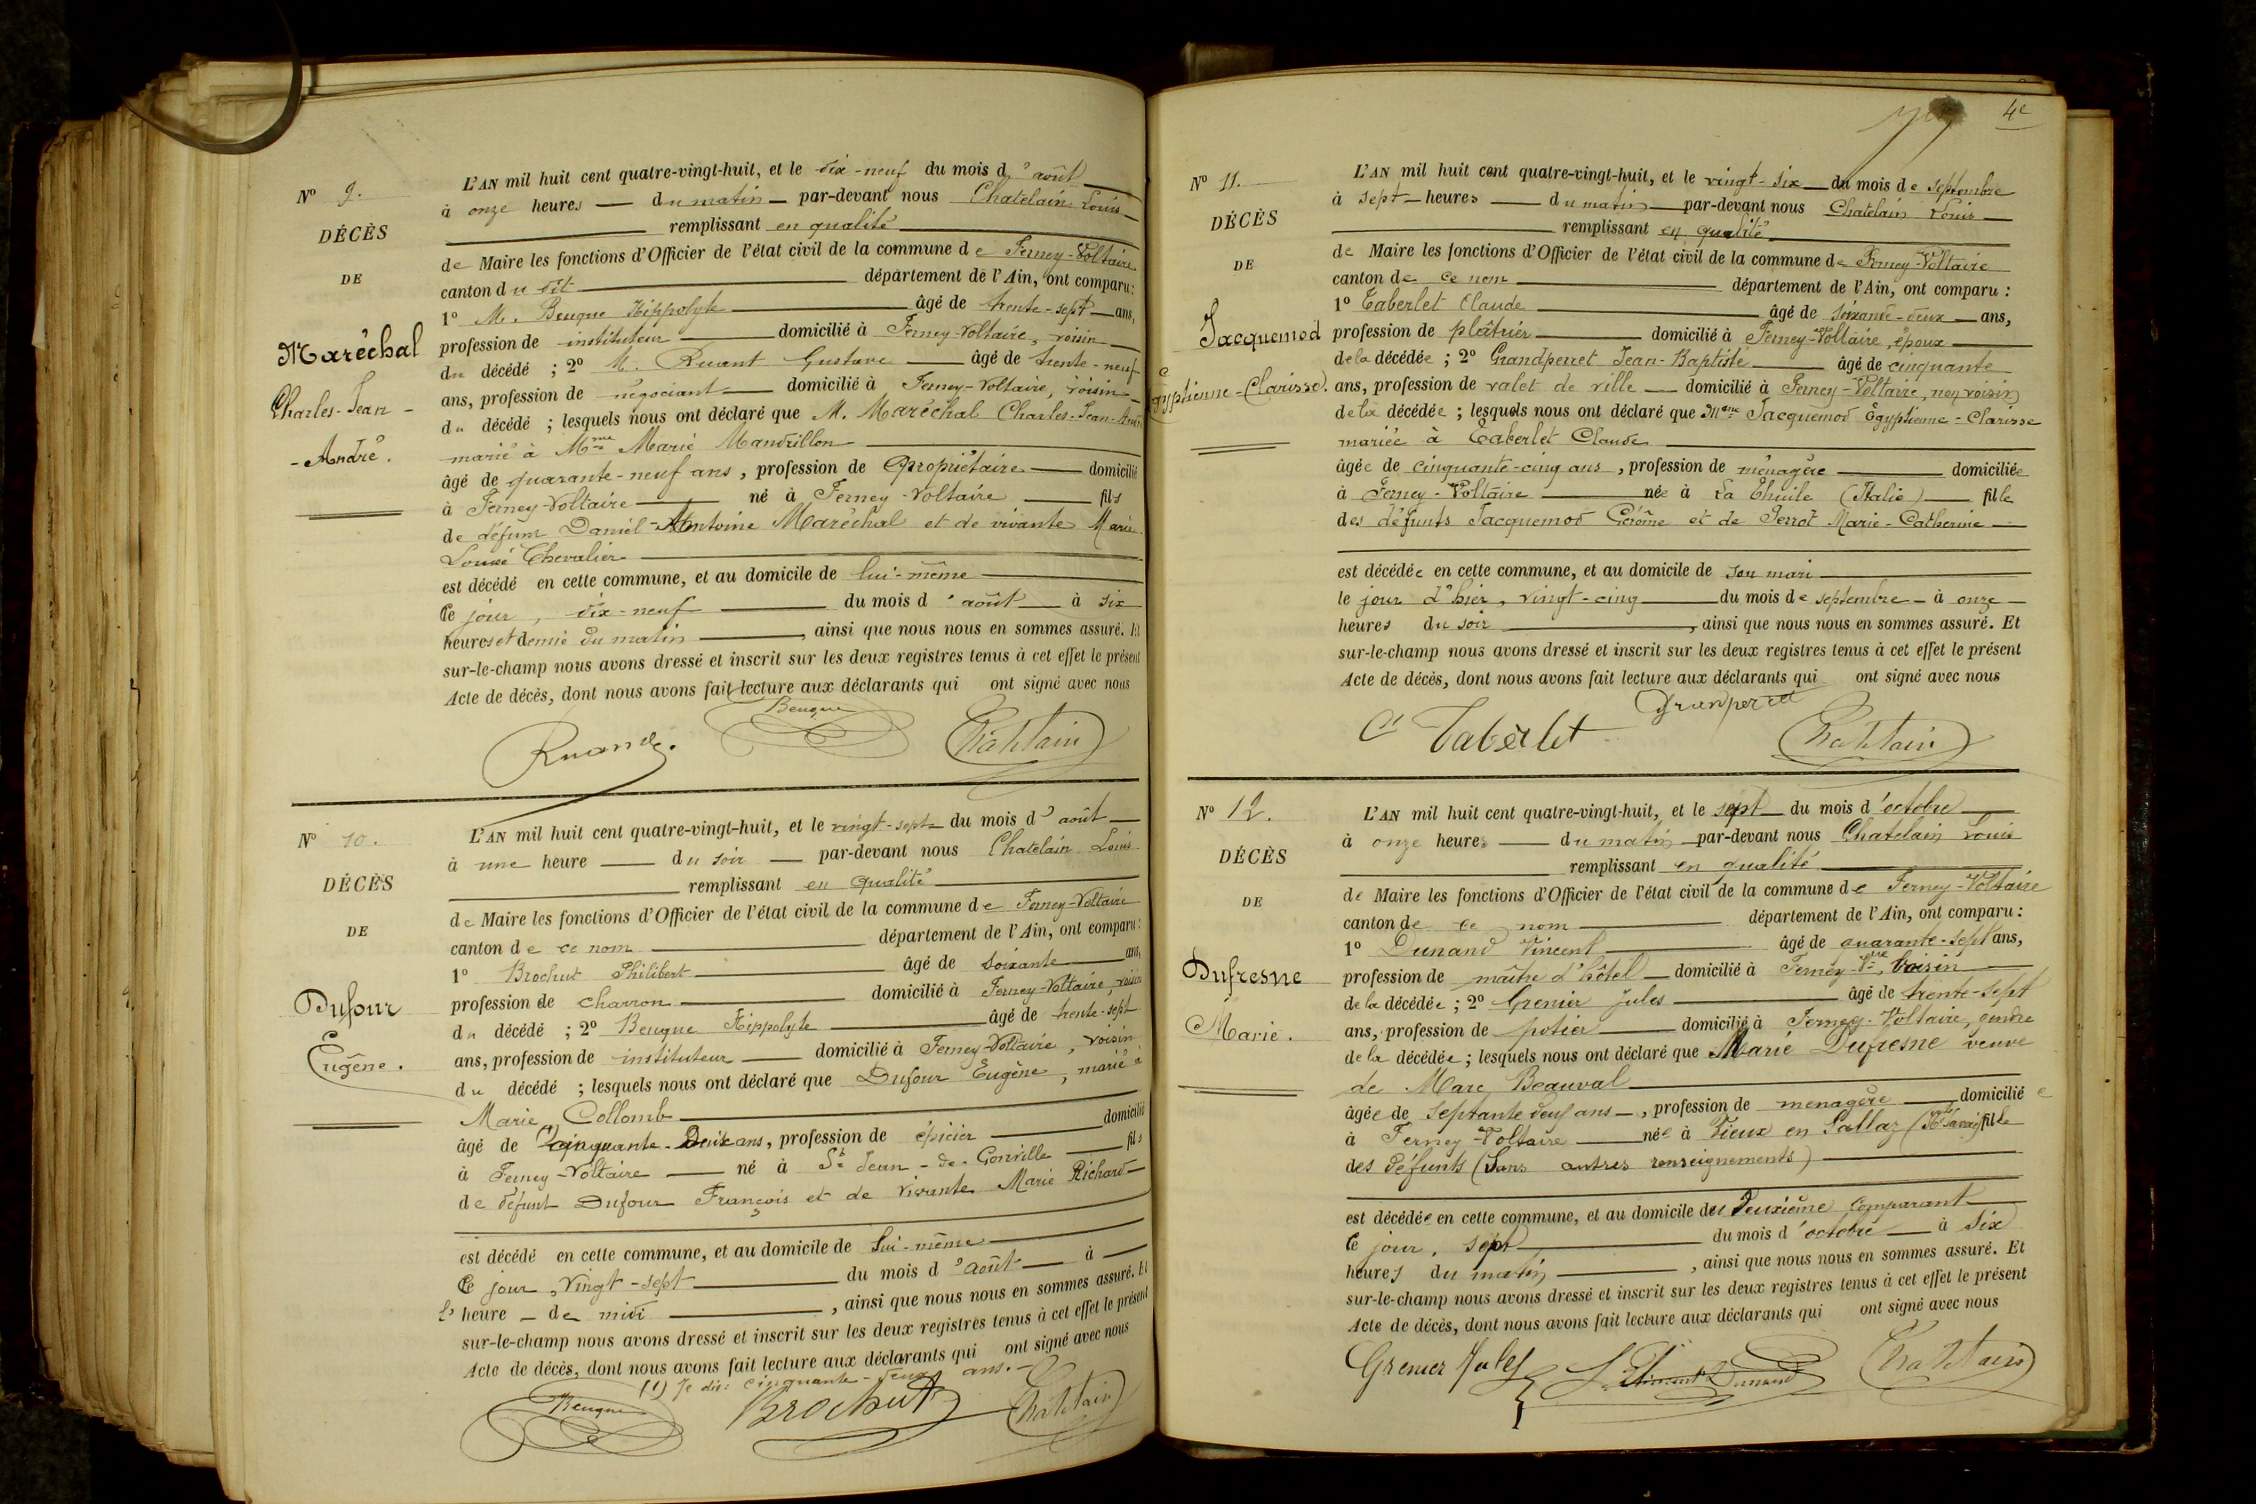 N° 9.
DÉCÈS
DE
Maréchal
Charles-Jean-
-André.
L'AN mil huit cent quatre-vingt-huit, et le dix-neuf du mois d'août
à onze heures du matin par-devant nous Chatelain Louis
remplissant en qualité
de Maire les fonctions d'Officier de l'état civil de la commune de Ferney-Voltaire
canton du dit département de l'Ain, ont comparu :
1° M. Beugne Hippolyte âgé de trente-sept ans,
profession de instituteur domicilié à Ferney-Voltaire, voisin
du décédé ; 2° M. Ruant Gustave âgé de trente-neuf
ans, profession de négociant domicilié à Ferney-Voltaire, voisin
du décédé ; lesquels nous ont déclaré que M. Maréchal Charles-Jean-André
marié à Mme Marie Mandrillon
âgé de quarante-neuf ans, profession de propriétaire domicilié
à Ferney-Voltaire né à Ferney-Voltaire fils
de défunt Daniel-Antoine Maréchal et de vivante Marie-
Louise Chevalier
est décédé en cette commune, et au domicile de lui-même
ce jour, dix-neuf du mois d'août à six
heures et demie du matin, ainsi que nous nous en sommes assuré. Et
sur-le-champ nous avons dressé et inscrit sur les deux registres tenus à cet effet le présent
Acte de décès, dont nous avons fait lecture aux déclarants qui ont signé avec nous
Ruant. Beugne Chatelain
N° 10.
DÉCÈS
DE
Dufour
Eugène.
L'AN mil huit cent quatre-vingt-huit, et le vingt-sept du mois d'août
à une heure du soir par-devant nous Chatelain Louis
remplissant en qualité
de Maire les fonctions d'Officier de l'état civil de la commune de Ferney-Voltaire
canton de ce nom département de l'Ain, ont comparu :
1° Brochut Philibert âgé de soixante ans,
profession de charron domicilié à Ferney-Voltaire, voisin
du décédé ; 2° Beugne Hippolyte âgé de trente-sept
ans, profession de instituteur domicilié à Ferney-Voltaire, voisin
du décédé ; lesquels nous ont déclaré que Dufour Eugène, marié à
Marie Collomb
âgé de (1) cinquante-deux ans, profession de épicier domicilié
à Ferney-Voltaire né à St Jean-de-Gonville fils
de défunt Dufour François et de vivante Marie Richard
est décédé en cette commune, et au domicile de lui-même
ce jour, vingt-sept du mois d'août à
l'heure de midi, ainsi que nous nous en sommes assuré. Et
sur-le-champ nous avons dressé et inscrit sur les deux registres tenus à cet effet le présent
Acte de décès, dont nous avons fait lecture aux déclarants qui ont signé avec nous
(1) Je dis : cinquante-deux ans.
Beugne Brochut Chatelain
4e
N° 11.
DÉCÈS
DE
Jacquemod
Egyptienne-Clarisse.
L'AN mil huit cent quatre-vingt-huit, et le vingt-six du mois de septembre
à sept heures du matin par-devant nous Chatelain Louis
remplissant en qualité
de Maire les fonctions d'Officier de l'état civil de la commune de Ferney-Voltaire
canton de ce nom département de l'Ain, ont comparu :
1° Taberlet Claude âgé de soixante-deux ans,
profession de plâtrier domicilié à Ferney-Voltaire, époux
de la décédée ; 2° Grandperret Jean-Baptiste âgé de cinquante
ans, profession de valet de ville domicilié à Ferney-Voltaire, non voisin
de la décédée ; lesquels nous ont déclaré que Mme Jacquemod Egyptienne-Clarisse
mariée à Taberlet Claude
âgée de cinquante-cinq ans, profession de ménagère domiciliée
à Ferney-Voltaire née à La Thuile (Italie) fille
des défunts Jacquemod Gérôme et de Perrot Marie-Catherine
est décédée en cette commune, et au domicile de son mari
le jour d'hier, vingt-cinq du mois de septembre à onze
heures du soir, ainsi que nous nous en sommes assuré. Et
sur-le-champ nous avons dressé et inscrit sur les deux registres tenus à cet effet le présent
Acte de décès, dont nous avons fait lecture aux déclarants qui ont signé avec nous
Cl Tabèrlet Granperret Chatelain
N° 12.
DÉCÈS
DE
Dufresne
Marie.
L'AN mil huit cent quatre-vingt-huit, et le sept du mois d'octobre
à onze heures du matin par-devant nous Chatelain Louis
remplissant en qualité
de Maire les fonctions d'Officier de l'état civil de la commune de Ferney-Voltaire
canton de ce nom département de l'Ain, ont comparu :
1° Dunand Vincent âgé de quarante-sept ans,
profession de maître d'hôtel domicilié à Ferney-Vre, voisin
de la décédée ; 2° Grenier Jules âgé de trente-sept
ans, profession de potier domicilié à Ferney-Voltaire, gendre
de la décédée ; lesquels nous ont déclaré que Marie Dufresne veuve
de Marc Beauval
âgée de septante neuf ans, profession de ménagère domiciliée
à Ferney-Voltaire née à Vieux en Sallaz (Hte Savoie) fille
des défunts (Sans autres renseignements)
est décédée en cette commune, et au domicile des deuxième comparant
ce jour, sept du mois d'octobre à six
heures du matin, ainsi que nous nous en sommes assuré. Et
sur-le-champ nous avons dressé et inscrit sur les deux registres tenus à cet effet le présent
Acte de décès, dont nous avons fait lecture aux déclarants qui ont signé avec nous
Grenier Jules Dunand Chatelain